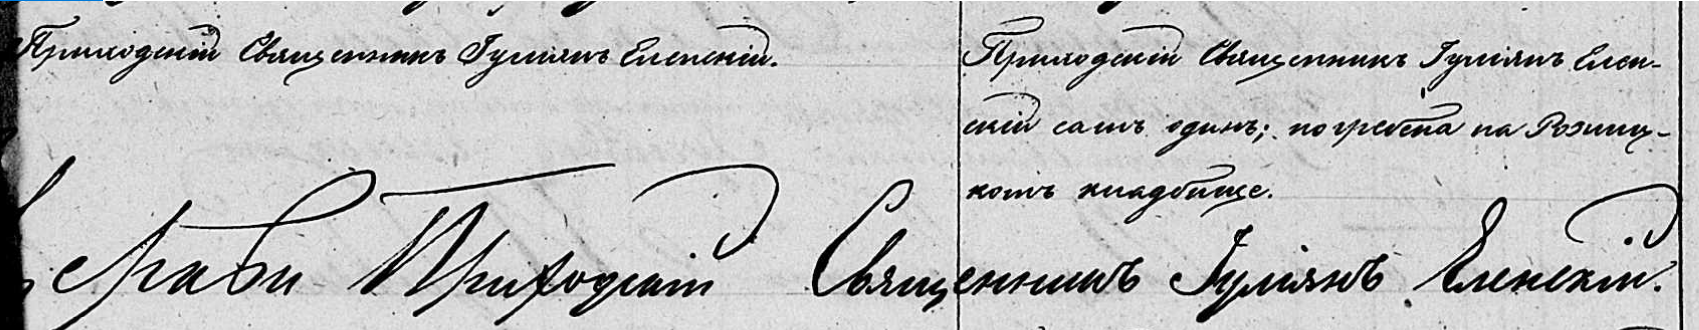 Приходскій Священникъ Іуліянъ Еленскій.
Приходскій Священникъ Іуліянъ Елен-
скій самъ одинъ; погребена на Розниц-
комъ кладбище.
Приходскій Священникъ Іуліянъ Еленскій.